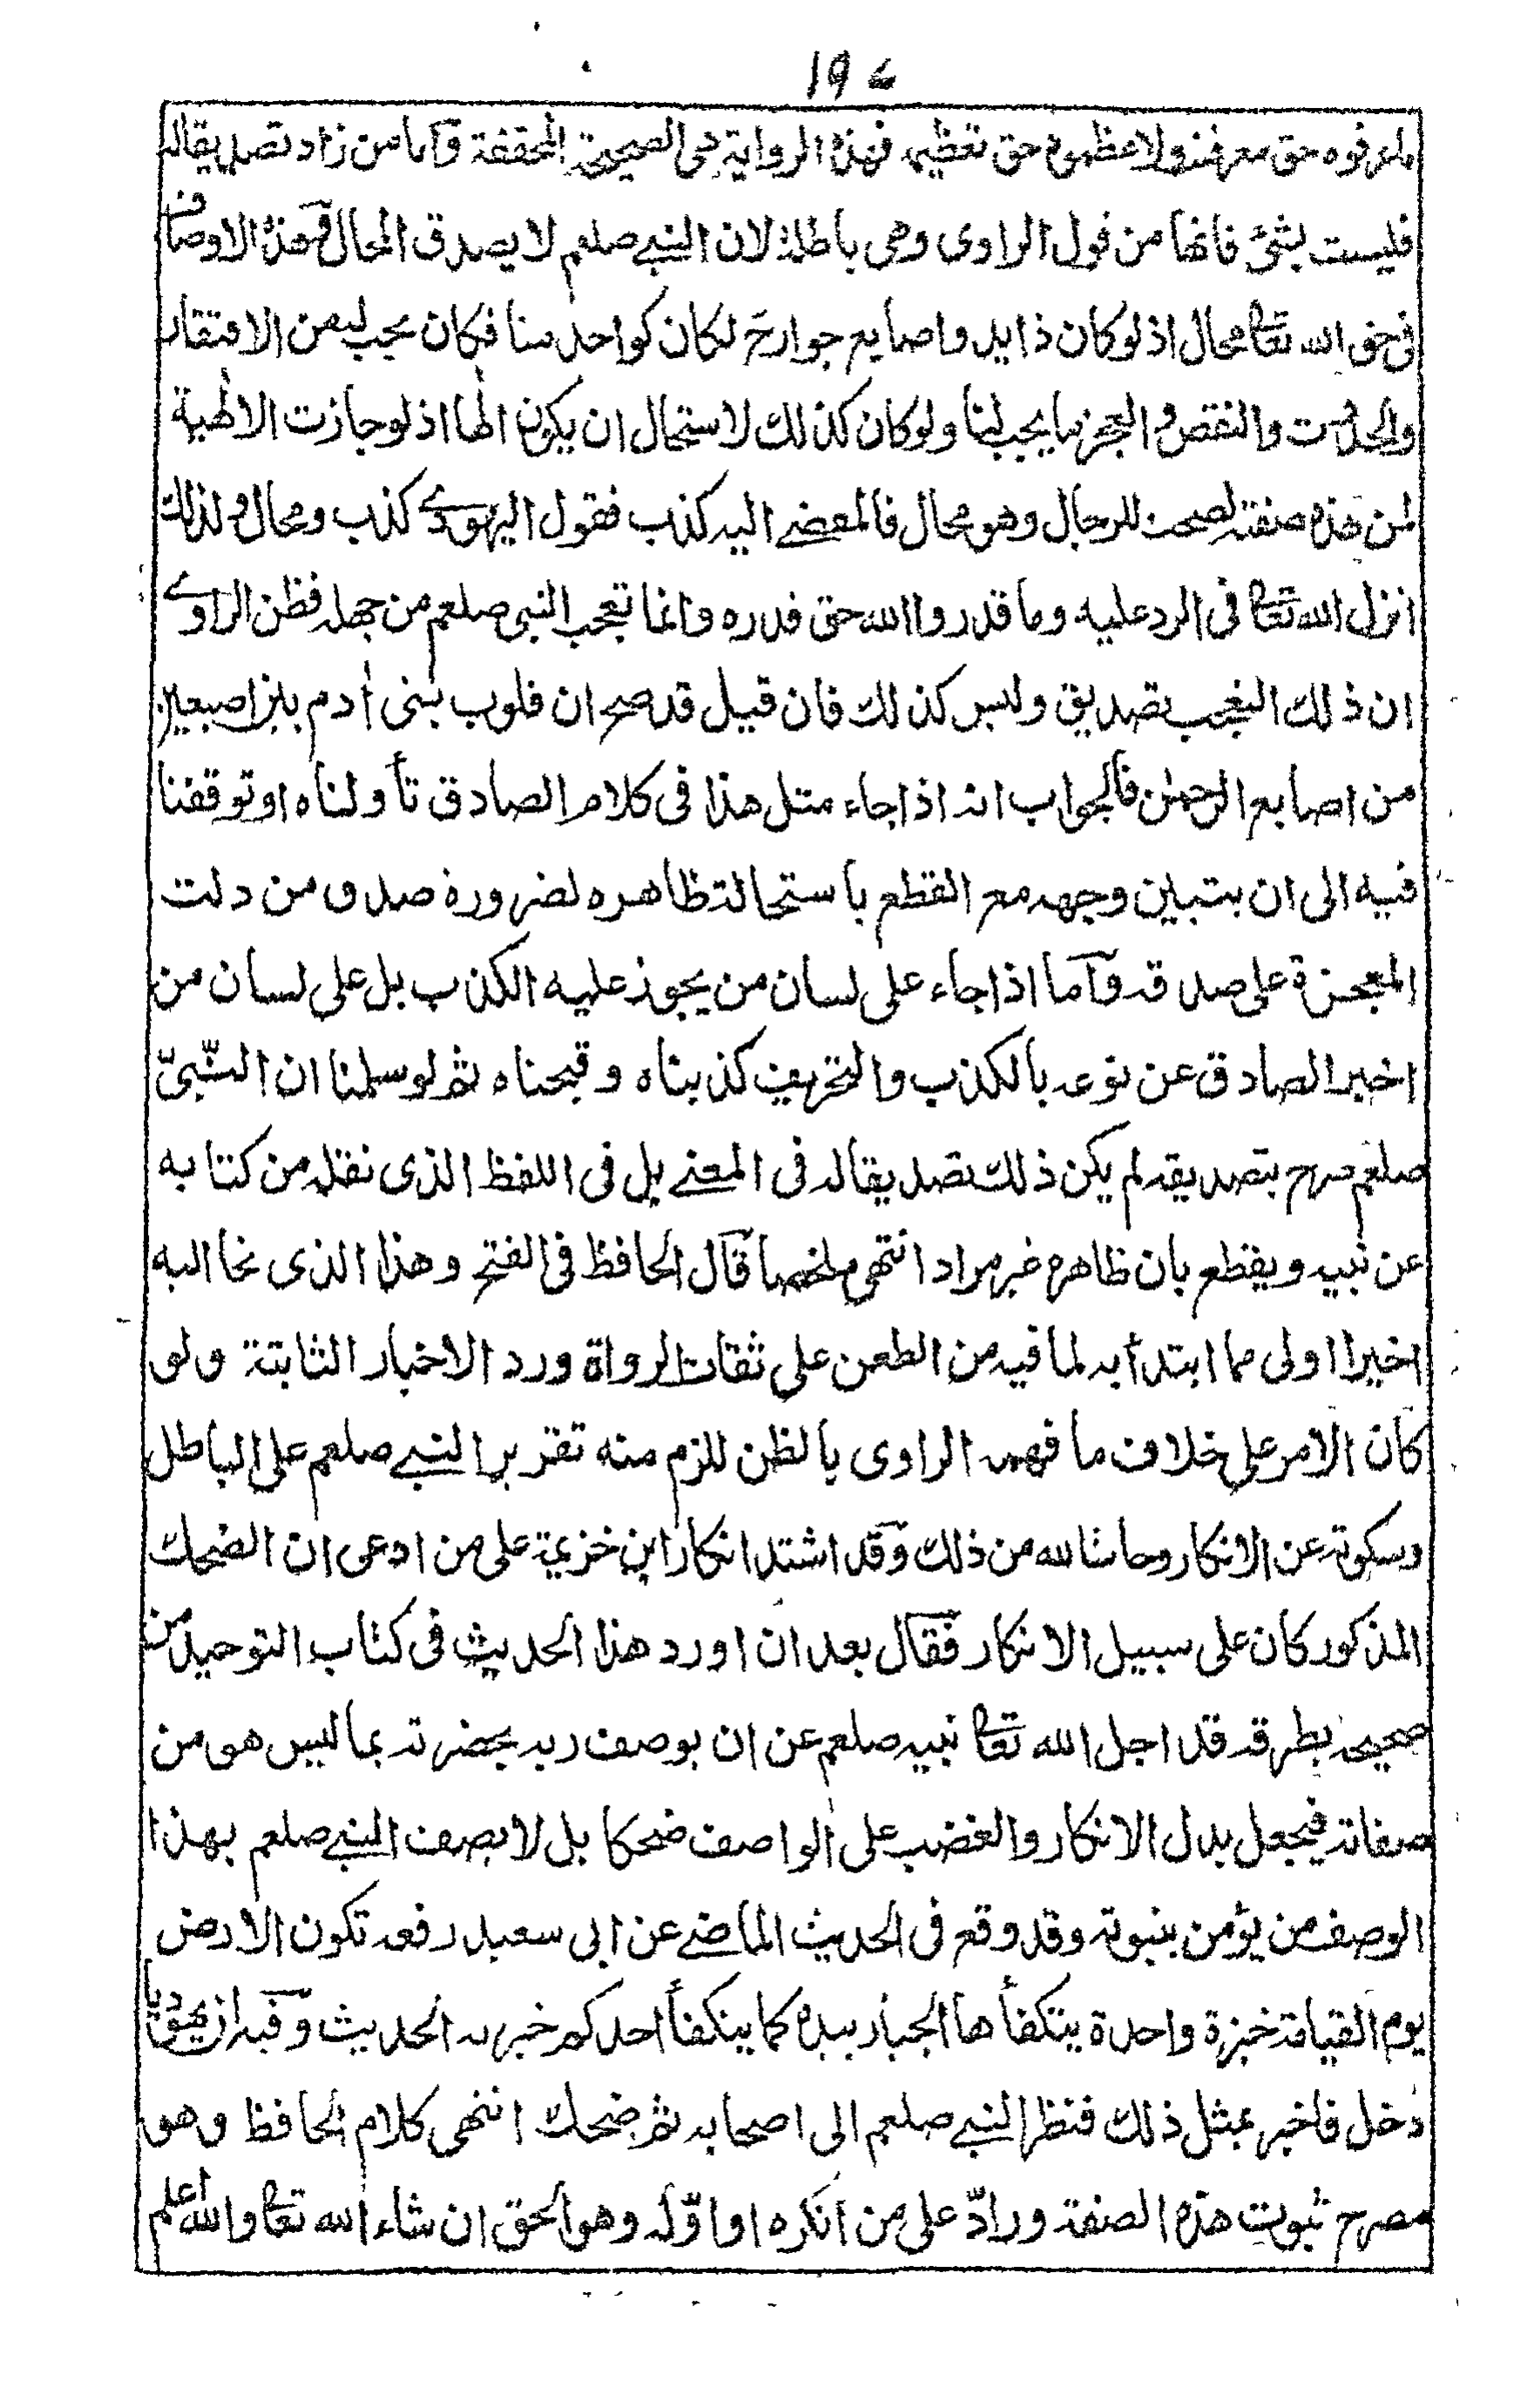 ١٩٧
ماعرفوه حق معرفته ولاعظموه حق تعظيمه فهذه الرواية هى الصحيحة المحققة وآما من زاد تصديقاله
فليست بشئ فانها من قول الراوى وهى باطلة لان النبى صلعم لا يصدق المحال وهذه الاوصاف
فى حق الله تعالى محال اذ لو كان ذا يد واصابع جوارح لكان كواحد منا فكان يجب له من الافتقار
والحدوث والنقص والعجز ما يجب لنا ولو كان كذلك لاستحال ان يكون الها اذ لو جازت الالٰهية
لمن هذه صفته لصحت للرجال وهو محال فالمفضى اليه كذب فقول اليهودى كذب ومحال ولذلك
انزل الله تعالى فى الرد عليه وما قدروا الله حق قدره وانما تعجب النبى صلعم من جهله فظن الراوى
ان ذلك التعجب تصديق وليس كذلك فان قيل قد صح ان قلوب بنى اٰدم بين اصبعين
من اصابع الرحمٰن فالجواب انه اذا جاء مثل هذا فى كلام الصادق تأولناه او توقفنا
فيه الى ان يتبين وجهه مع القطع باستحالة ظاهره لضرورة صدق من دلت
المعجزة على صدقه وآما اذا جاء على لسان من يجوز عليه الكذب بل على لسان من
اخبر الصادق عن نوعه بالكذب والتحريف كذبناه وقبحناه ثم لو سلمنا ان النّبىّ
صلعم صرح بتصديقه لم يكن ذلك تصديقاله فى المعنى بل فى اللفظ الذى نقله من كتابه
عن نبيه ويقطع بان ظاهره غير مراد انتهى ملخصا قآل الحافظ فى الفتح وهذا الذى نحا اليه
اخيرا اولى مما ابتدأ به لما فيه من الطعن على ثقات الرواة ورد الاخبار الثابتة ولو
كان الامر على خلاف ما فهمه الراوى بالظن للزم منه تقرير النبى صلعم على الباطل
وسكوته عن الانكار وحاشا لله من ذلك وقد اشتد انكار ابن خزيمة على من ادعى ان الضحك
المذكور كان على سبيل الانكار فقال بعد ان اورد هذا الحديث فى كتاب التوحيد من
صحيحه بطرقه قد اجل الله تعالى نبيه صلعم عن ان يوصف ربه بحضرته بما ليس هو من
صفاته فيجعل بدل الانكار والغضب على الواصف ضحكا بل لا يصف النبى صلعم بهذا
الوصف من يؤمن بنبوته وقد وقع فى الحديث الماضى عن ابى سعيد رفعه تكون الارض
يوم القيامة خبزة واحدة يتكفأها الجبار بيده كما يتكفأ احدكم خبزته الحديث وفيه ان يهوديا
دخل فاخبر بمثل ذلك فنظر النبى صلعم الى اصحابه ثم ضحك انتهى كلام الحافظ وهو
مصرح ثبوت هذه الصفة ورادّ على من انكره او اوّله وهو الحق ان شاء الله تعالى والله اعلم